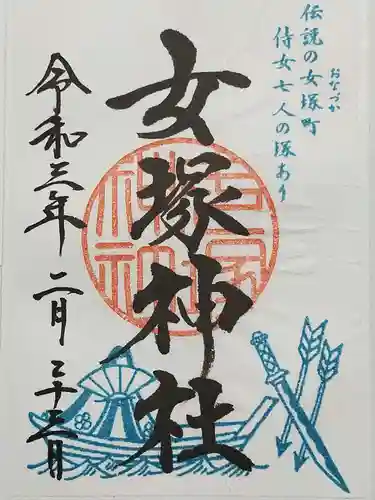 伝説の女塚町
おなづか
侍女七人の塚あり
女塚神社
令和三年二月二十三日